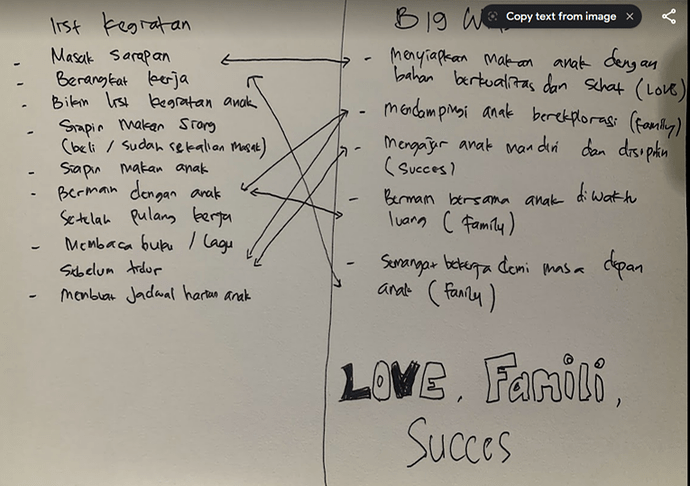 list kegiatan
- Masak sarapan
- Berangkat kerja
- Bikin list kegiatan anak
- Siapin makan siang
(beli / sudah sekalian masak)
- Siapin makan anak
- Bermain dengan anak
setelah pulang kerja
- Membaca buku / lagu
sebelum tidur
- membuat jadwal harian anak
Big
Copy text from image
- menyiapkan makan anak dengan
bahan berkualitas dan sehat (LOVE)
- mendampingi anak berekplorasi (family)
- Mengajar anak mandiri dan disiplin
(Succes)
- Bermain bersama anak diwaktu
luang (family)
- Semangat bekerja demi masa depan
anak (family)
LOVE, Famili,
Succes